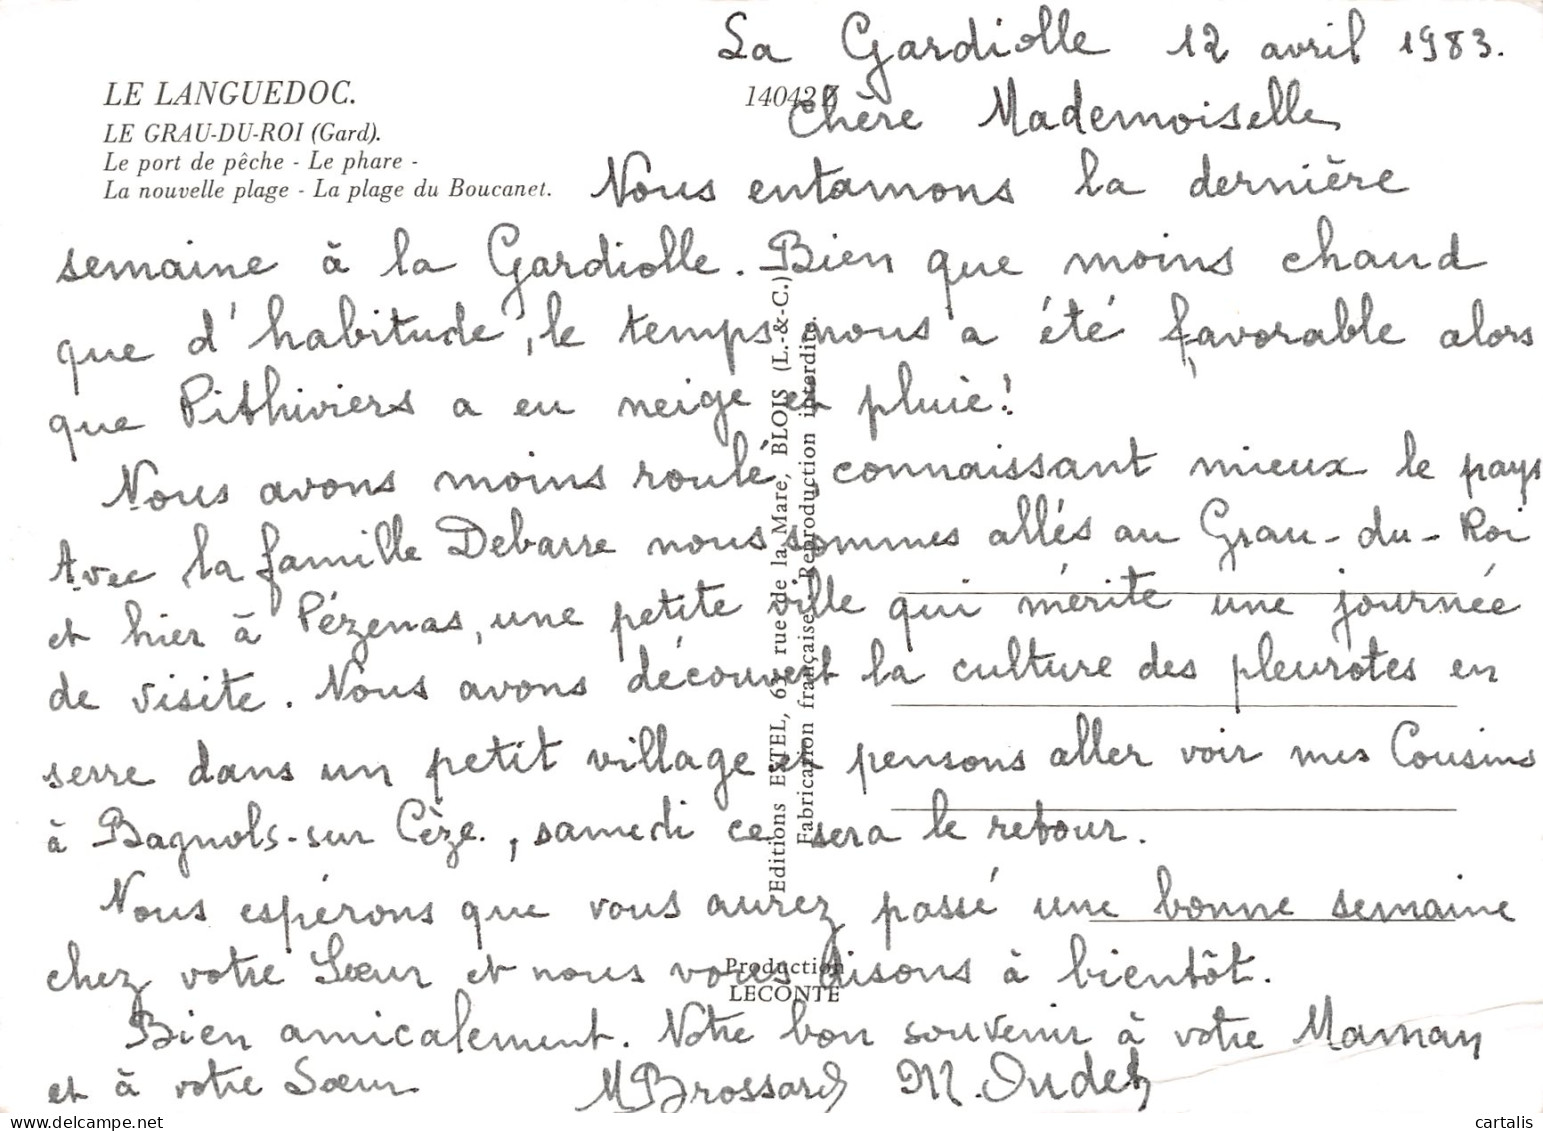 La Gardiolle 12 avril 1983.
LE LANGUEDOC.
14042
Chère Mademoiselle,
LE GRAU-DU-ROI (Gard).
Le port de pêche - Le phare -
La nouvelle plage - La plage du Boucanet.
Nous entamons la dernière
semaine à la Gardiolle. Bien que moins chaud
que d'habitude, le temps nous a été favorable alors
que Pithiviers a eu neige et pluie!
Nous avons moins roulé, connaissant mieux le pays
Avec la famille Debarre nous sommes allés au Grau-du-Roi
et hier à Pézenas, une petite ville qui mérite une journée
de visite. Nous avons découvert la culture des pleurotes en
serre dans un petit village et pensons aller voir mes Cousins
à Bagnols-sur Cèze., samedi ce sera le retour.
Nous espérons que vous aurez passé une bonne semaine
chez votre Soeur et nous vous disons à bientôt.
Bien amicalement. Notre bon souvenir à votre Maman
et à votre Soeur
M Brossard M. Oudet
Editions ESTEL, rue de la Mare, BLOIS (L.-&-C.)
Fabrication française Reproduction interdite.
Production
LECONTE
cartalis